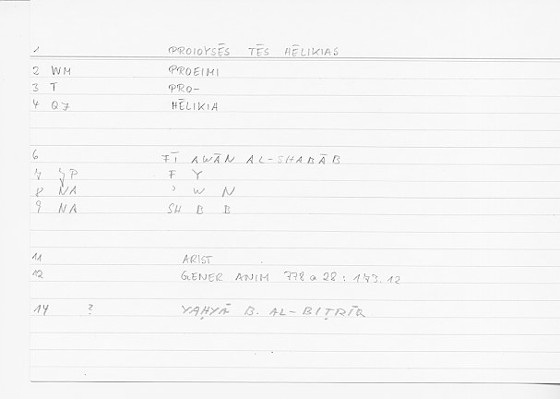 1 PROIOYSĒS TĒS HĒLIKIAS
2 WM PROEIMI
3 T PRO-
4 QJ HĒLIKIA
6 FĪ AWĀN AL-SHABĀB
7 P F Y
8 NA ' W N
9 NA SH B B
11 ARIST
12 GENER ANIM 778 a 28 : 173.12
14 ? YAḤYĀ B. AL-BIṬRĪQ